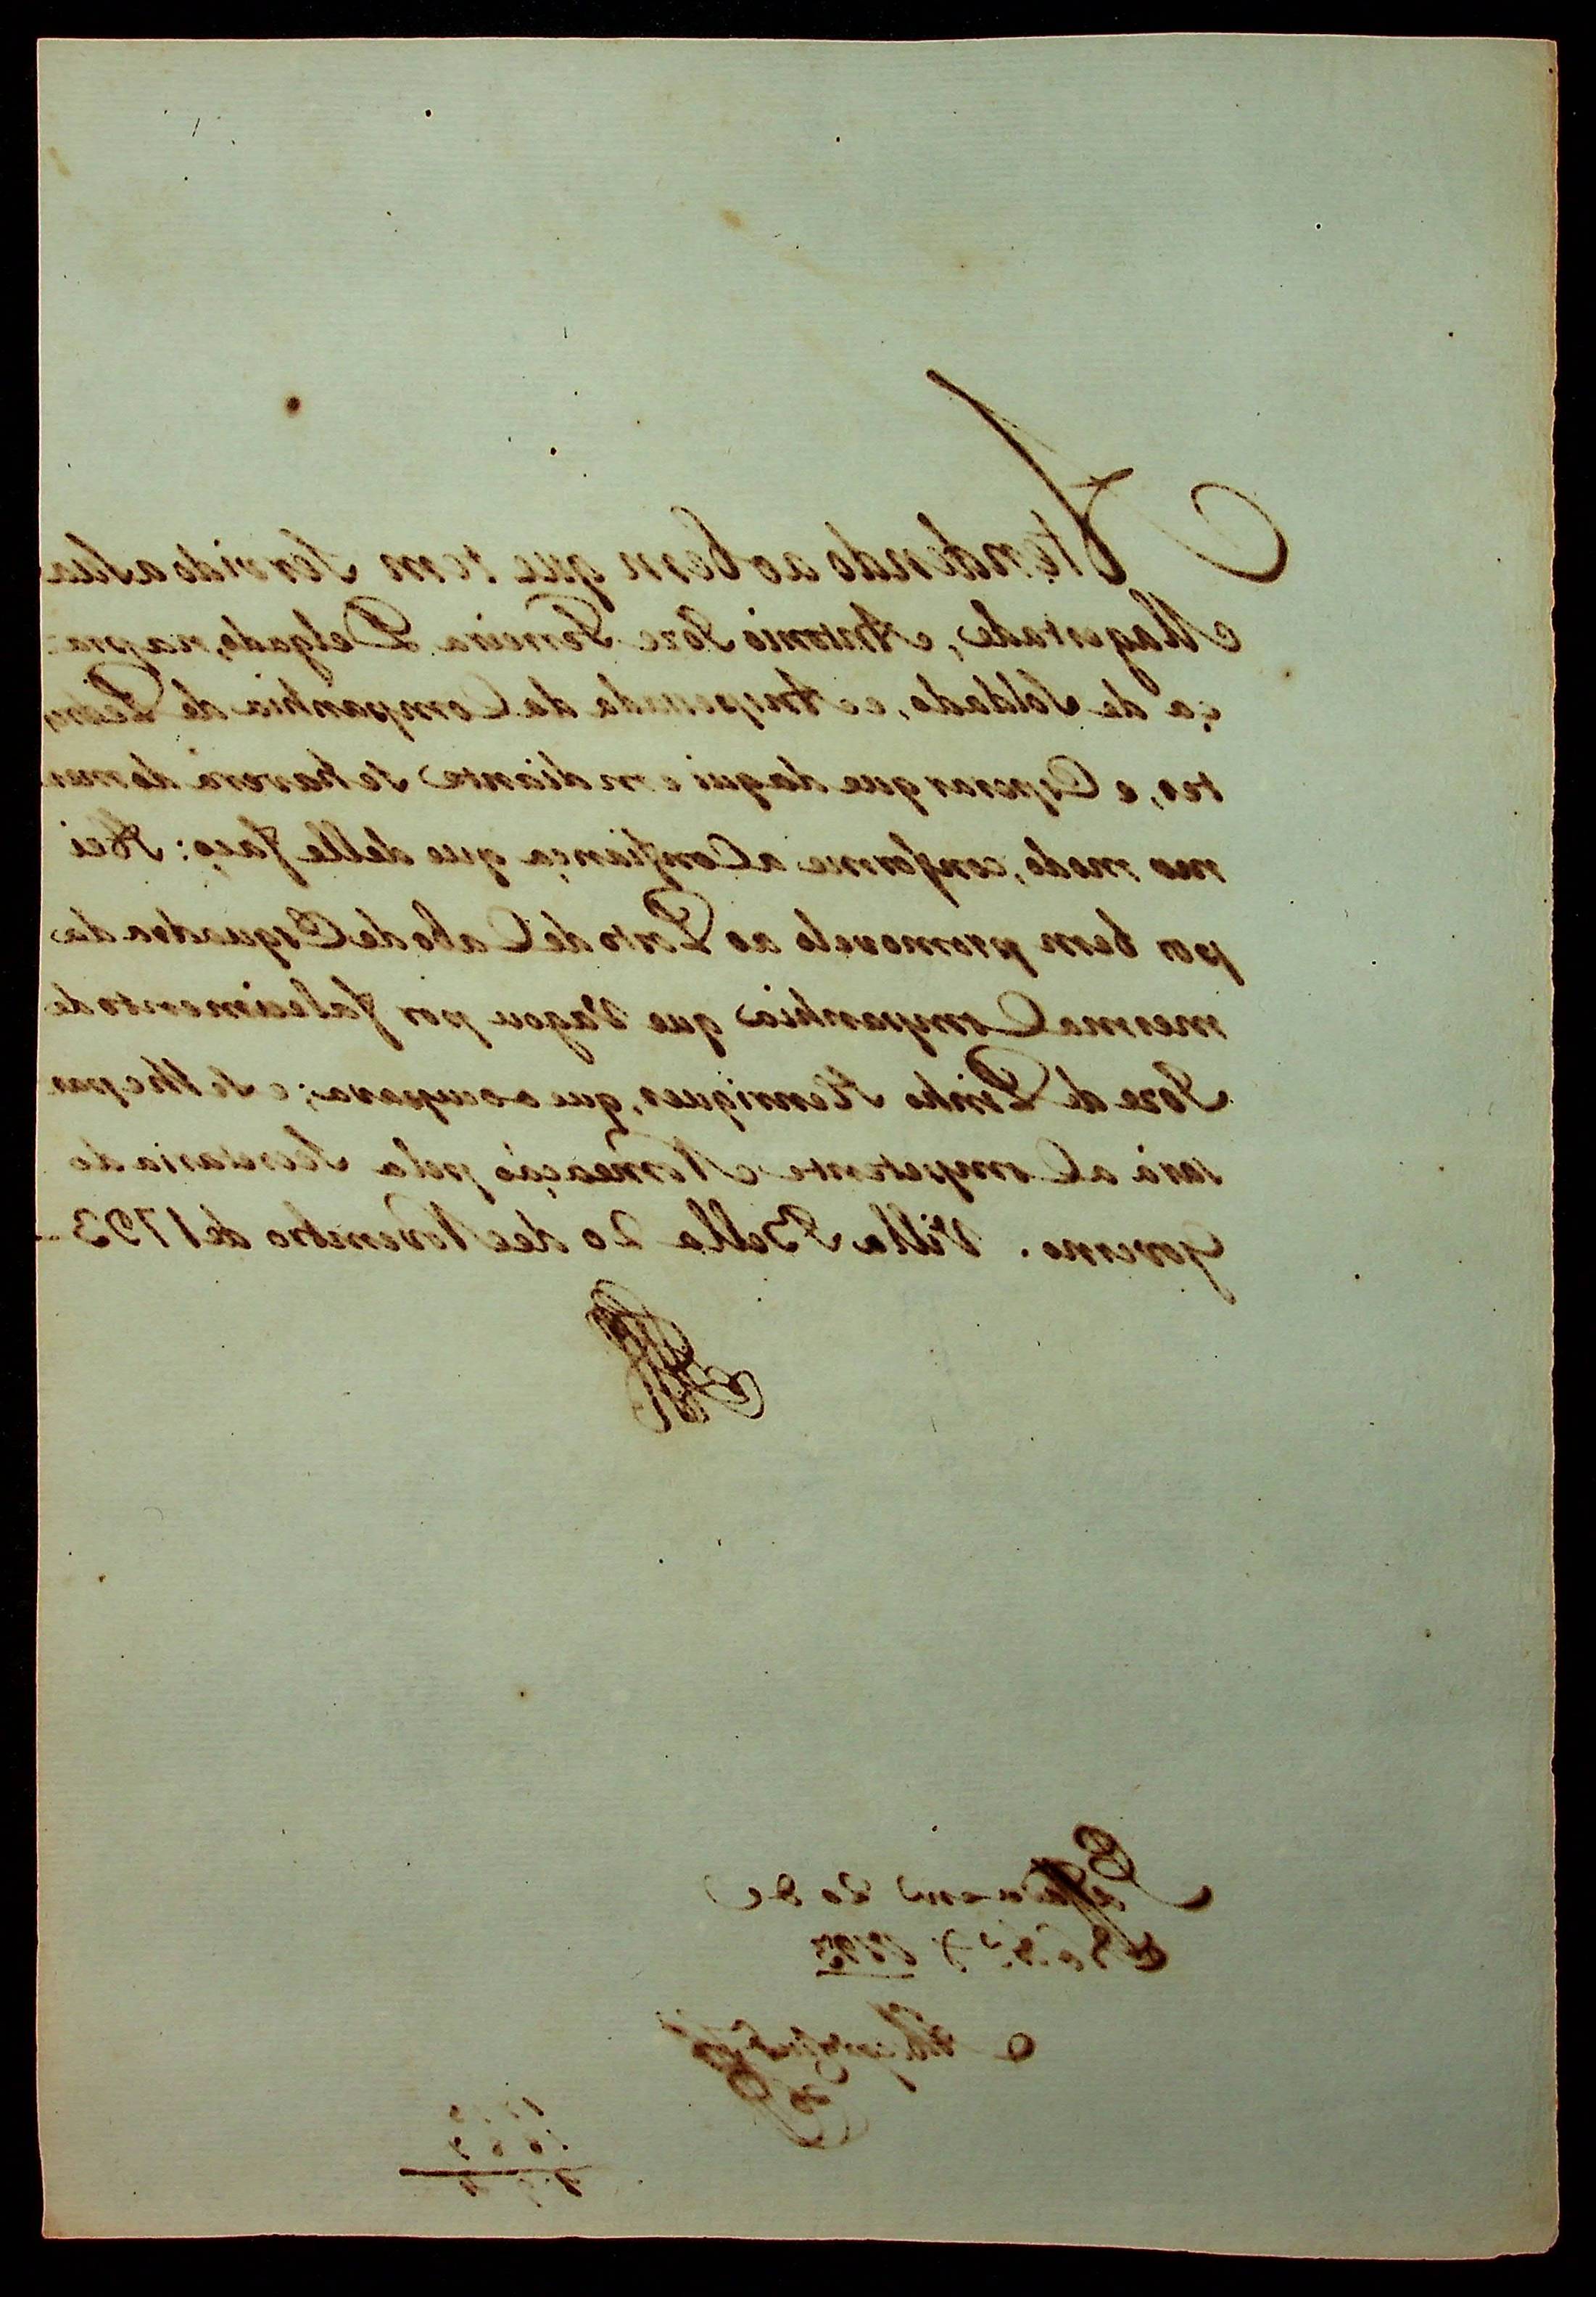 Attendendo ao bem que tem Servido a Sua
Magestade, Antonio Joze Ferreira Delgado, na pra=
ça de Soldado, e Anspesada da Companhia de Pedres
tes, e Esperar que daqui em diante se haverá do mes
mo modo, conforme a Confiança que delle faço: Hei
por bem promovelo ao Posto de Cabo de Esquadra da
mesma Companhia que Vagou por falecimento de
Joze de Pinho Henriques, que o occupava; e se lhe pas
sará a Competente Nomeação pela Secretaria do
Governo. Villa Bella 20 de Novembro de 1793
em 20 de